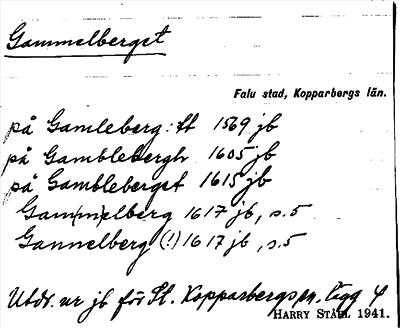 Gammelberget
Falu stad, Kopparbergs län.
på Gamleberg:tt 1569 jb
på Gamblebergh 1605 jb
på Gambleberget 1615 jb
Gam(m)elberg 1617 jb, s.5
Gannelberg (!) 1617 jb, s.5
Utdr. ur jb för St. Kopparbergs sn. lägg 4
HARRY STÅHL 1941.